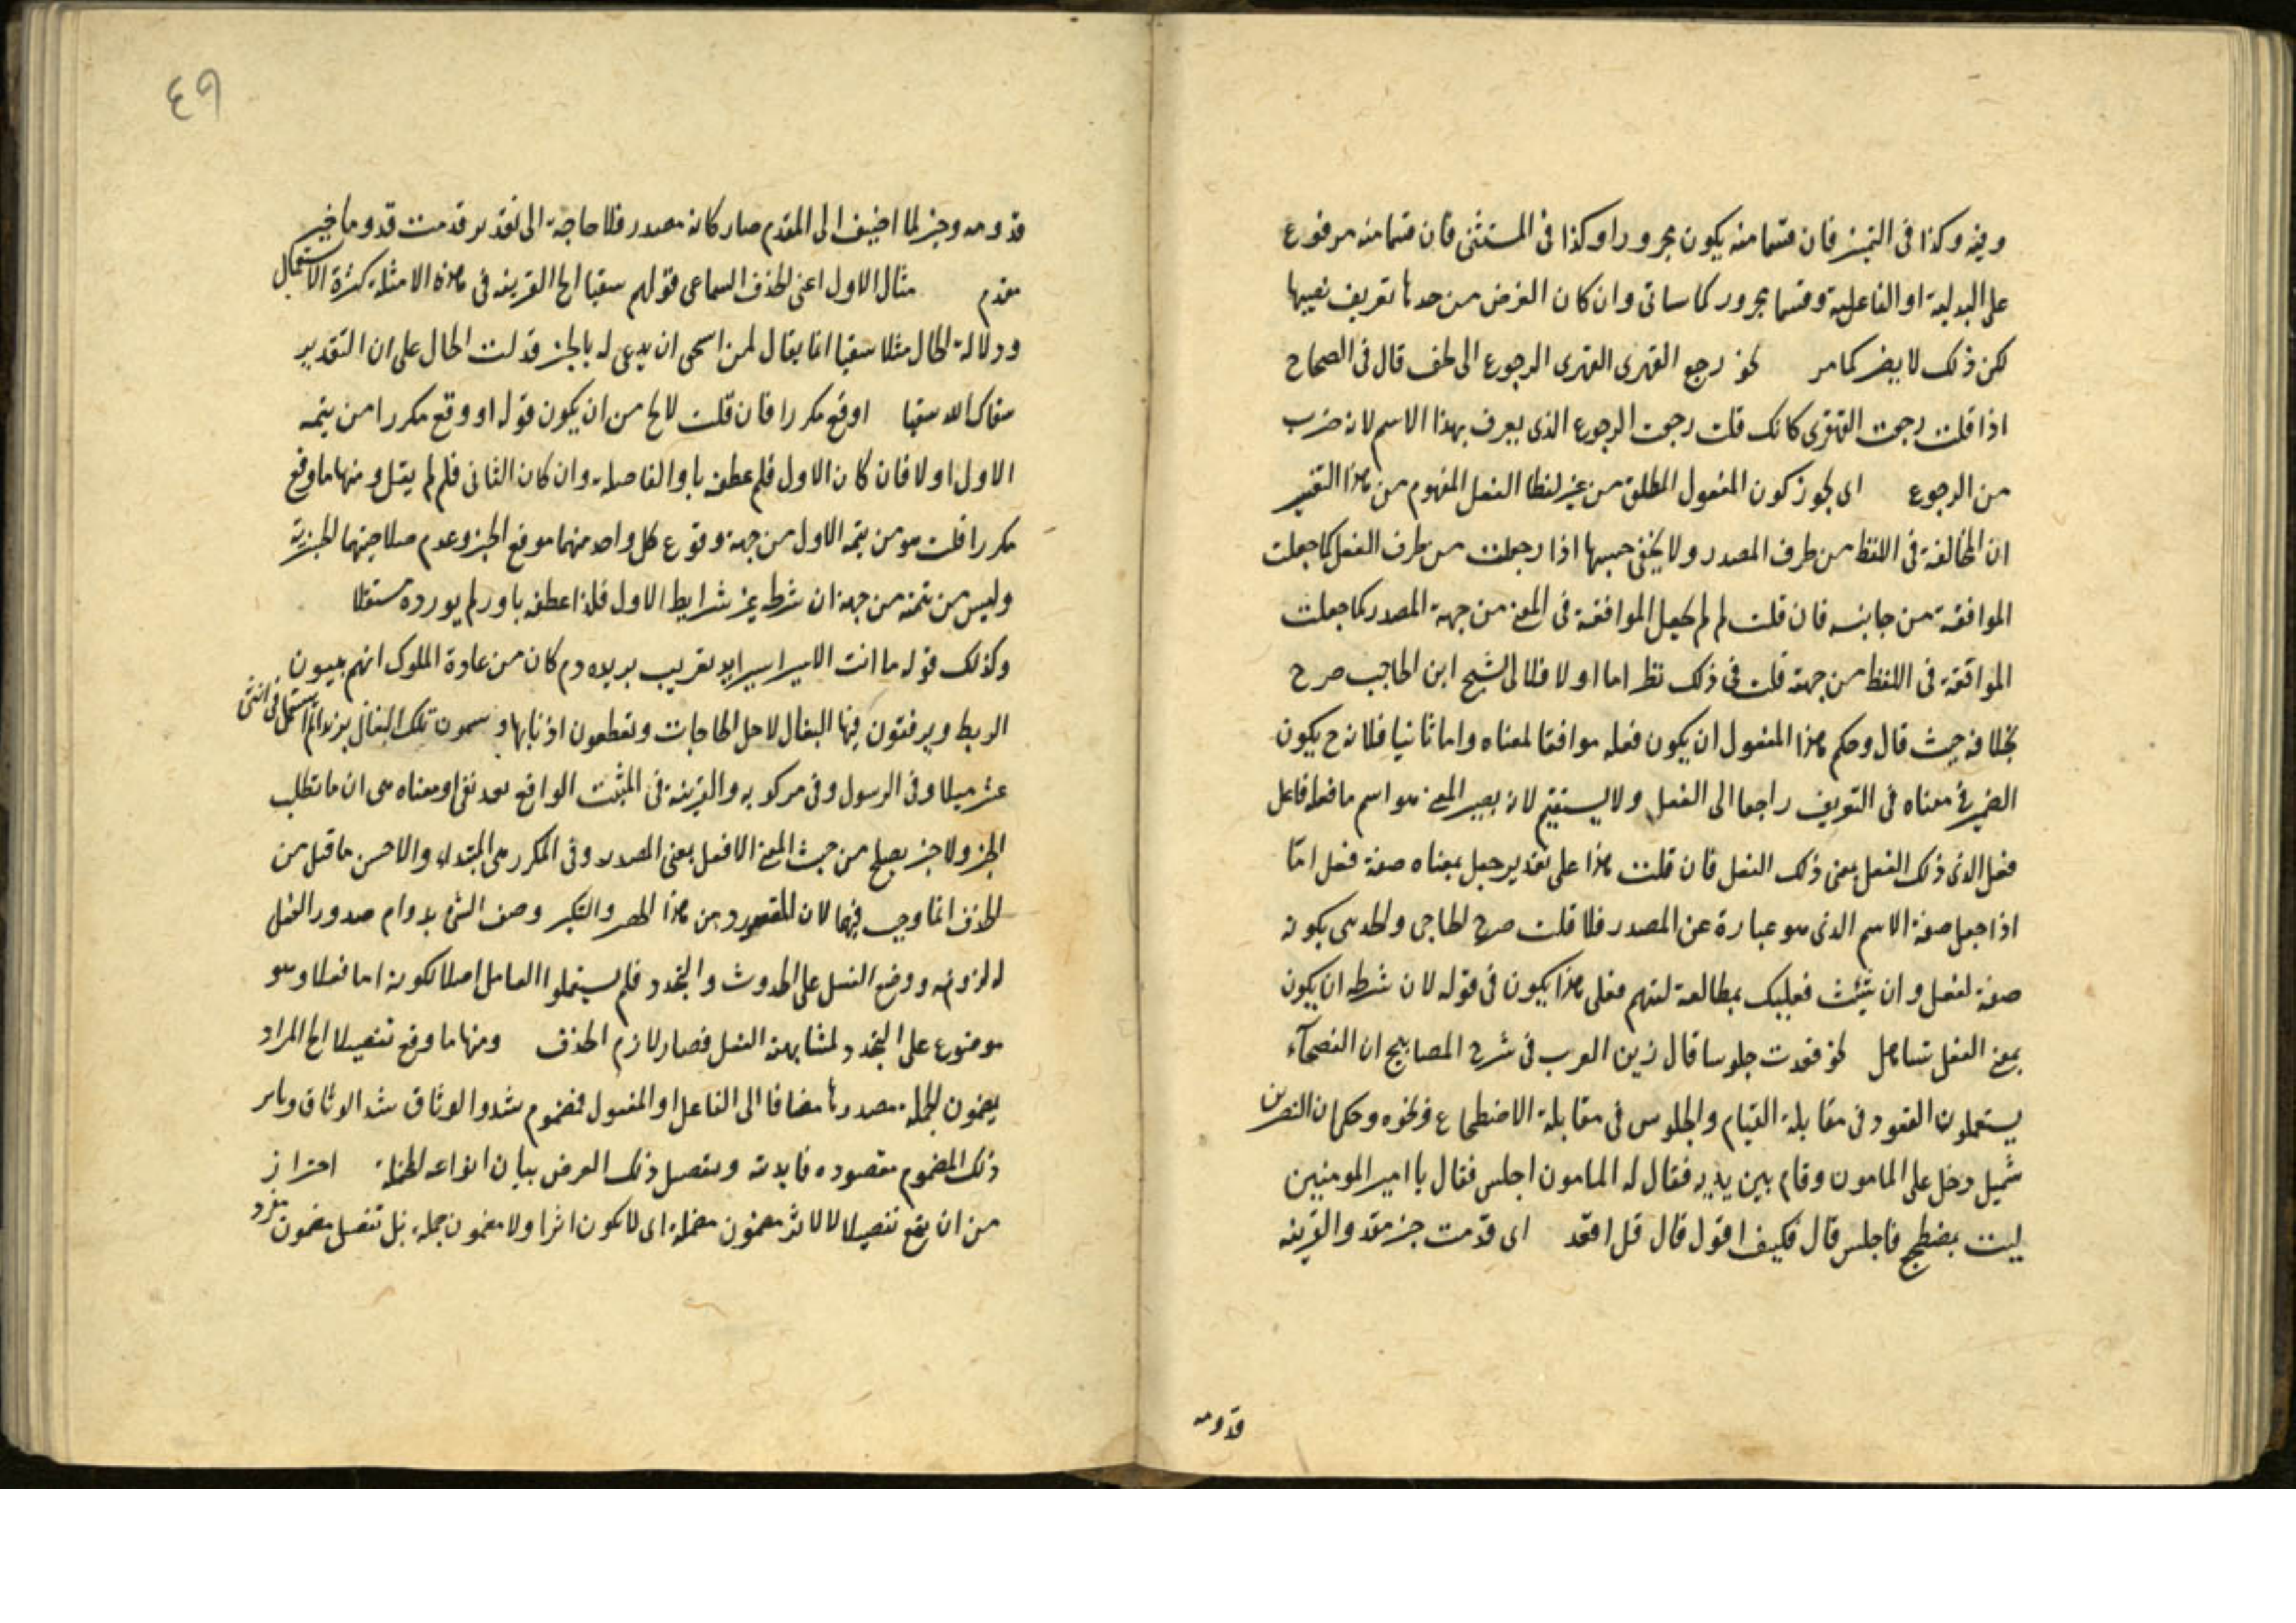 وفيه وكذا فى التميز فان قسما منه يكون مجرورا وكذا فى المستثنى فان قسما منه مرفوع
على البدلية او الفاعلية وقسما مجرور كما سياتى وان كان الغرض من حدها تعريف نصبها
لكن ذلك لا يضر كما مر نحو رجع القهقرى القهقرى الرجوع الى خلف قال فى الصحاح
اذا قلت رجعت القهقرى كانك قلت رجعت الرجوع الذى يعرف بهذا الاسم لانه ضرب
من الرجوع اى يجوز كون المفعول المطلق من غير لفظ الفعل المفهوم من هذا التفسير
ان المخالفة فى اللفظ من طرف المصدر ولا يخفى حسنها اذا جعلت من طرف الفعل كما جعلت
الموافقة من جانبه فان قلت لم لم يجعل الموافقة فى المعنى من جهة المصدر كما جعلت
الموافقة فى اللفظ من جهته قلت فى ذلك نظر اما اولا فلان الشيخ ابن الحاجب صرح
بخلافه حيث قال وحكم هذا المفعول ان يكون فعله موافقا لمعناه واما ثانيا فلانه ح يكون
الضمير فى معناه فى التعريف راجعا الى الفعل ولا يستقيم لانه يصير المعنى هو اسم ما فعله فاعل
فعل الذى ذلك الفعل بمعنى ذلك الفعل فان قلت هذا على تقدير جعل بمعناه صفة فعل اما
اذا جعل صفة الاسم الذى هو عبارة عن المصدر فلا قلت صرح الحاجبى والحدىثى بكونه
صفة لفعل وان شئت فعليك بمطالعة كتبهم فعلى هذا يكون فى قوله لان شرطه ان يكون
بمعنى الفعل تساهل نحو قعدت جلوسا قال زين العرب فى شرح المصابيح ان الفصحآء
يستعملون القعود فى مقابلة القيام والجلوس فى مقابلة الاضطجاع ونحوه وحكى ان النضر بن
شميل دخل على المامون وقام بين يديه فقال له المامون اجلس فقال يا امير المومنين
ليت بمضطجع فاجلس قال فكيف اقول قال قل اقعد اى قدمت خير مقدم والقرينة
قدومه
٤٩
قدومه وخير لما اضيف الى المقدم صار كانه مصدر فلا حاجة الى تقدير قدمت قدوما خير
مقدم مثال الاول اعنى الحذف السماعى قولهم سقيا الخ القرينة فى هذه الامثلة كثرة الاستعمال
ودلالة الحال مثلا سقيا انما يقال لمن استحق ان يدعى له بالخير فدلت الحال على ان التقدير
سقاك الله سقيا او وقع مكررا فان قلت لا يخ من ان يكون قوله او وقع مكررا من تتمة
الاول اولا فان كان الاول فلم عطفه باو الفاصلة وان كان الثانى فلم لم يقل ومنها ما وقع
مكررا قلت هو من تتمة الاول من جهة وقوع كل واحد منهما موقع الخبر وعدم صلاحيتهما للخبرية
وليس من تتمته من جهة ان شرطه غير شرايط الاول فلذا عطفه باو ولم يورده مستقلا
وكذلك قوله ما انت الا سيرا سير البريد تعريب بريده دم كان من عادة الملوك انهم يبنون
الربط ويرفتون فيها البغال لاجل الحاجات ويقطعون اذنابها ويسمون تلك البغال بريدا ثم استعمل فى اثنى
عشر ميلا وفى الرسول وفى مركوبه والقرينة فى المثبت الواقع بعد نفى او معناه هى ان ما تطلب
الخبر ولا خبر يصلح من حيث المعنى الا فعل بمعنى المصدر وفى المكرر هى المبتداء والاحسن ما قيل من
الحذف انما وجب فيهما لان المقصود من هذا الحصر والتكرير وصف الشئ بدوام صدور الفعل
له لزومه ووضع الفعل على الحدوث والتجدد فلم يستعملوا العامل اصلا لكونه اما فعلا وهو
موضوع على التجدد لمشابهة الفعل فصار لازم الحذف ومنها ما وقع تفصيلا الخ المراد
بمضمون الجملة مصدرها مضافا الى الفاعل او المفعول فمضمون شدوا الوثاق شد الوثاق وباثر
ذلك المضمون مقصوده فايدته وبتفصيل ذلك الغرض بيان انواعه المحتملة احتراز
من ان يقع تفصيلا لا لاثر مضمون جملة اى لا يكون اثرا ولا مضمون جملة بل تفصيل مضمون مفرد